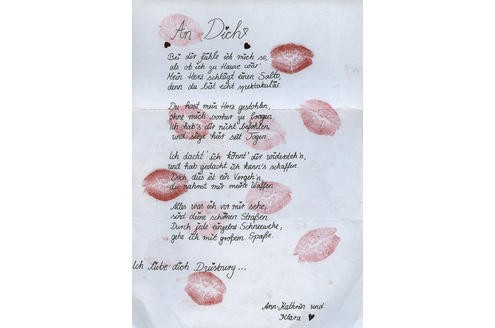 An Dich
Bei dir fühle ich mich so,
als ob ich zu Hause wär'.
Mein Herz schlägt einen Salto,
denn du bist echt spektakulär.
Du hast mein Herz gestohlen,
ohne mich vorher zu fragen.
Ich hab's dir nicht befohlen
und liege hier seit Tagen.
Ich dacht' ich könnt' dir widersteh'n,
und hab gedacht ich kann's schaffen.
Doch dies ist ein Vergeh'n,
du nahmst mir meine Waffen.
Alles was ich vor mir sehe,
sind deine schönen Straßen.
Durch jede einzelne Schneewehe,
gehe ich mit großem Spaße.
Ich liebe dich Duisburg...
Ann-Kathrin und
Klara